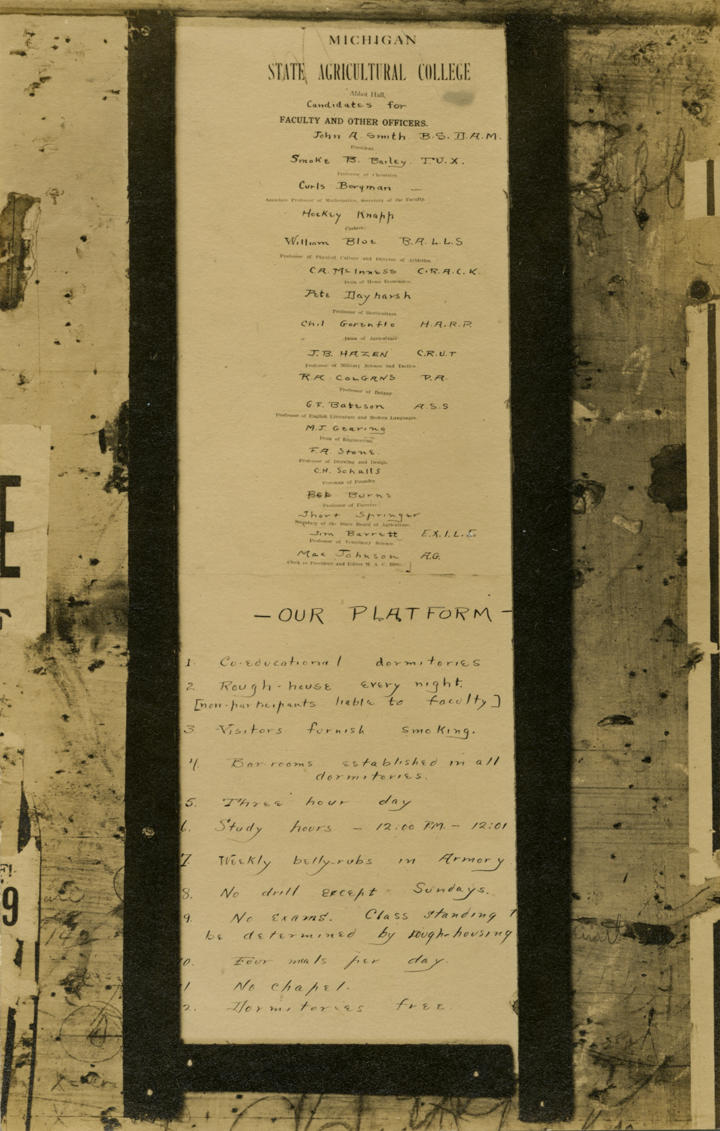 MICHIGAN
STATE AGRICULTURAL COLLEGE
Abbot Hall,
Candidates for
FACULTY AND OTHER OFFICERS.
John A. Smith B.S. D.A.M.
President.
Smoke B. Bailey. T.U.X.
Professor of Chemistry.
Curls Borgman —
Associate Professor of Mathematics, Secretary of the Faculty.
Hockey Knapp
Cashier.
William Bloe B.A.L.L.S
Professor of Physical Culture and Director of Athletics.
C.A. McInness C.R.A.C.K.
Dean of Home Economics.
Pete Dayharsh
Professor of Horticulture.
Chil Gorenflo H.A.R.P.
Dean of Agriculture.
J.B. HAZEN C.R.U.T
Professor of Military Science and Tactics.
R.A. COLGANS P.A.
Professor of Botany.
G.F. Bateson A.S.S
Professor of English Literature and Modern Languages.
M.J. Gearing
Dean of Engineering.
F.A. Stone.
Professor of Drawing and Design.
C.H. Schalls
Foreman of Foundry.
Bob Burns
Professor of Forestry.
Short Springer
Secretary of the State Board of Agriculture.
Jim Barrett E.X.I.L.E
Professor of Veterinary Science.
Mac Johnson A.G.
Clerk to President and Editor M. A. C.
— OUR PLATFORM —
1. Co-educational dormitories
2. Rough-house every night.
[non-participants liable to faculty]
3. Visitors furnish smoking.
4. Bar-rooms established in all
dormitories.
5. Three hour day
6. Study hours — 12:00 P.M. — 12:01
7. Weekly belly-rubs in Armory
8. No drill except Sundays.
9. No exams. Class standing
be determined by rough-housing
0. Four meals per day.
1. No chapel.
2. Dormitories free.
E
9